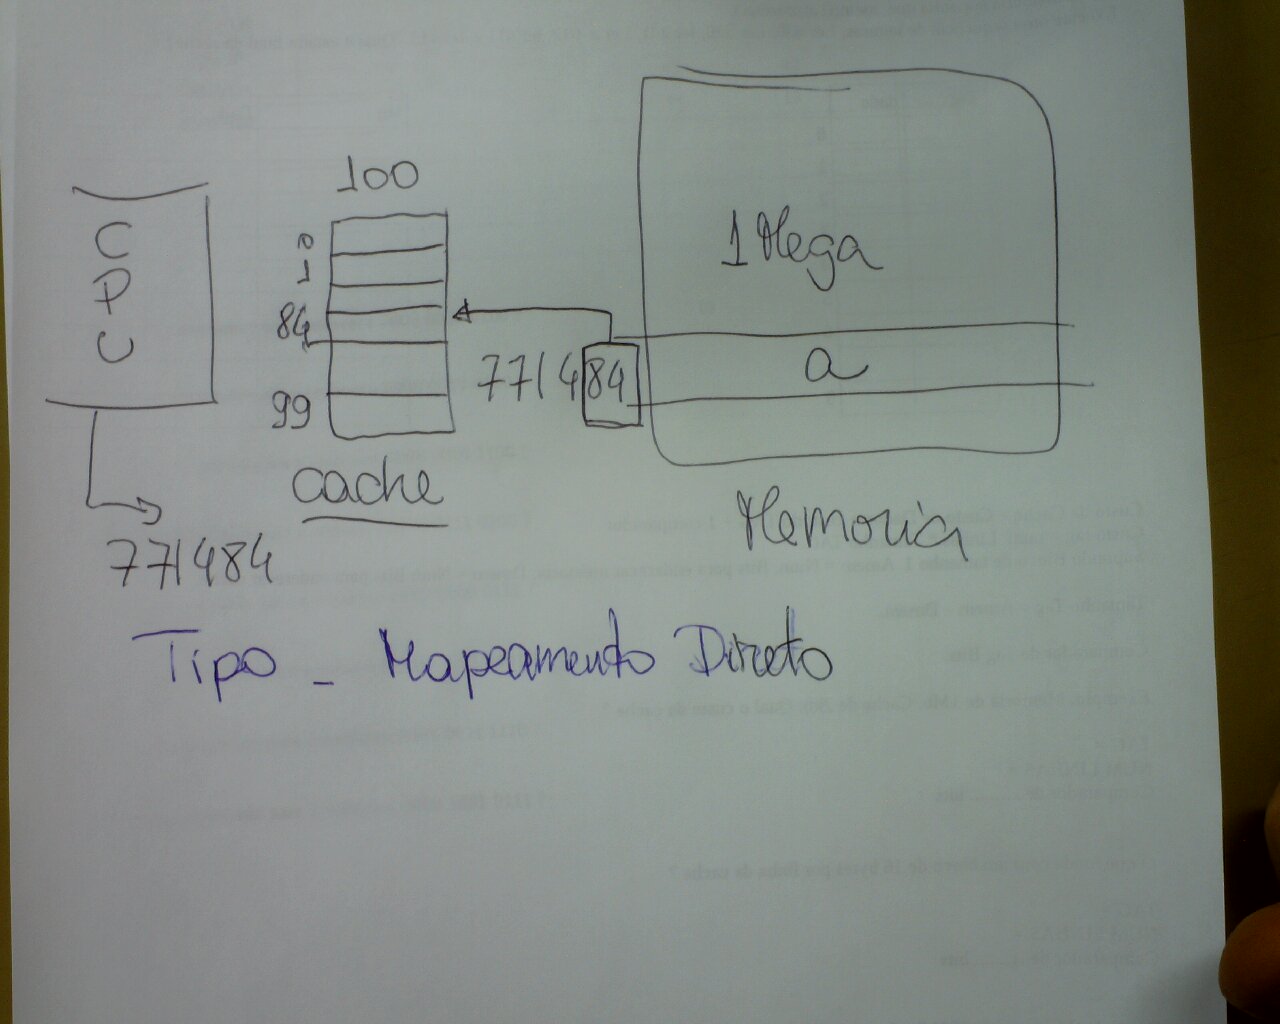 100
CPU
0
1
84
99
cache
771484
771484
1 Mega
a
Memoria
Tipo - Mapeamento Direto